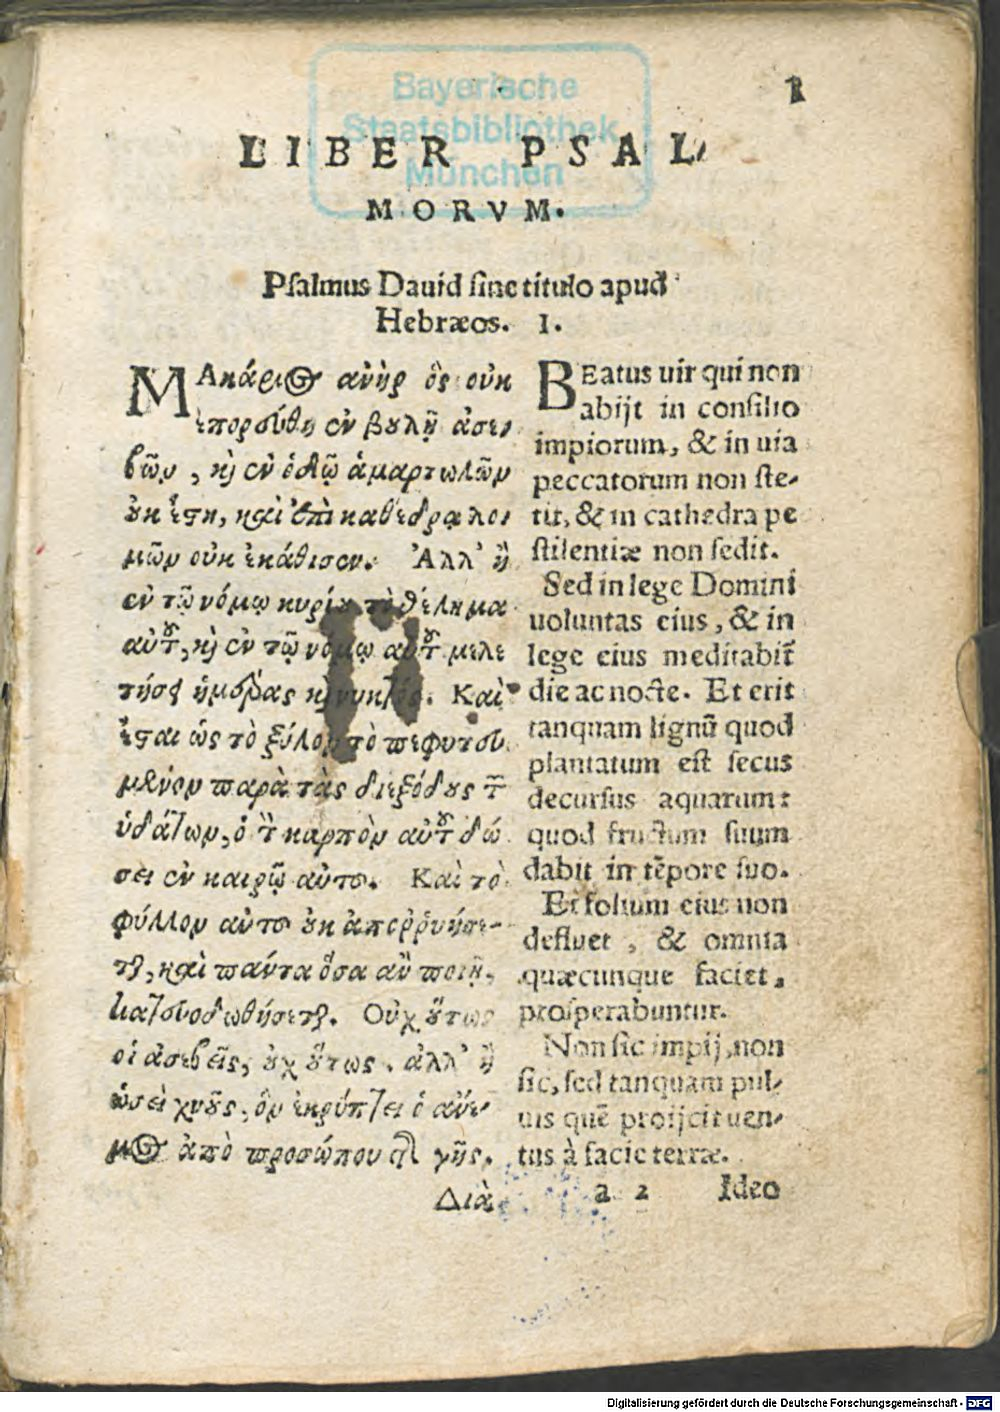 Bayerische
Staatsbibliothek
München
1
LIBER PSAL-
MORVM.
Psalmus Dauid sine titulo apud
Hebræos. 1.
ΜΑκάριος ἀνὴρ ὃς οὐκ
ἐπορεύθη ἐν βουλῇ ἀσε-
βῶν, καὶ ἐν ὁδῷ ἁμαρτωλῶν
οὐκ ἔστη, καὶ ἐπὶ καθέδρᾳ λοι
μῶν οὐκ ἐκάθισεν. Ἀλλ' ἢ
ἐν τῷ νόμῳ κυρίου τὸ θέλημα
αὐτοῦ, καὶ ἐν τῷ νόμῳ αὐτοῦ μελε
τήσει ἡμέρας καὶ νυκτός. Καὶ
ἔσται ὡς τὸ ξύλον τὸ πεφυτευ
μένον παρὰ τὰς διεξόδους τῶν
ὑδάτων, ὃ τὸν καρπὸν αὐτοῦ δώ
σει ἐν καιρῷ αὐτοῦ. Καὶ τὸ
φύλλον αὐτοῦ οὐκ ἀπορῥυήσε-
ται, καὶ πάντα ὅσα ἂν ποιῇ,
κατευοδωθήσεται. Οὐχ οὕτως
οἱ ἀσεβεῖς, οὐχ οὕτως, ἀλλ' ἢ
ὡσεὶ χνοῦς, ὃν ἐκρίπτει ὁ ἄνε-
μος ἀπὸ προσώπου τῆς γῆς.
Διὰ
BEatus uir qui non
abijt in consilio
impiorum, & in uia
peccatorum non ste-
tit, & in cathedra pe
stilentiæ non sedit.
Sed in lege Domini
uoluntas eius, & in
lege eius meditabit̃
die ac nocte. Et erit
tanquam lignũ quod
plantatum est secus
decursus aquarum:
quod fructum suum
dabit in tẽpore suo.
Et folium eius non
defluet, & omnia
quæcunque faciet,
prosperabuntur.
Non sic impij, non
sic, sed tanquam pul-
uis quẽ proijcit uen-
tus à facie terræ.
a 2 Ideo
Digitalisierung gefördert durch die Deutsche Forschungsgemeinschaft - DFG